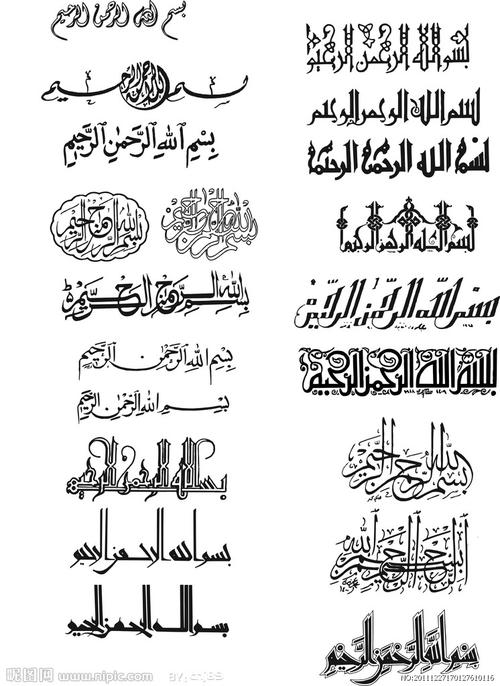 بسم الله الرحمن الرحيم
بسم الله الرحمن الرحيم
بِسْمِ اللهِ الرَّحْمٰنِ الرَّحِيمِ
بسم الله الرحمن الرحيم
بسم الله الرحمن الرحيم
بسم الله الرحمن الرحيم
بِسْمِ اللهِ الرَّحْمٰنِ الرَّحِيمِ
بِسْمِ اللهِ الرَّحْمٰنِ الرَّحِيمِ
بسم الله الرحمن الرحيم
بسم الله الرحمن الرحيم
بسم الله الرحمن الرحيم
بسم الله الرحمن الرحيم
بسم الله الرحمن الرحيم
بسم الله الرحمن الرحيم
بسم الله الرحمن الرحيم
بسم الله الرحمن الرحيم
بسم الله الرحمن الرحيم
بسم الله الرحمن الرحيم
بسم الله الرحمن الرحيم
بسم الله الرحمن الرحيم
昵图网 www.nipic.com
NO:20111227170127610116